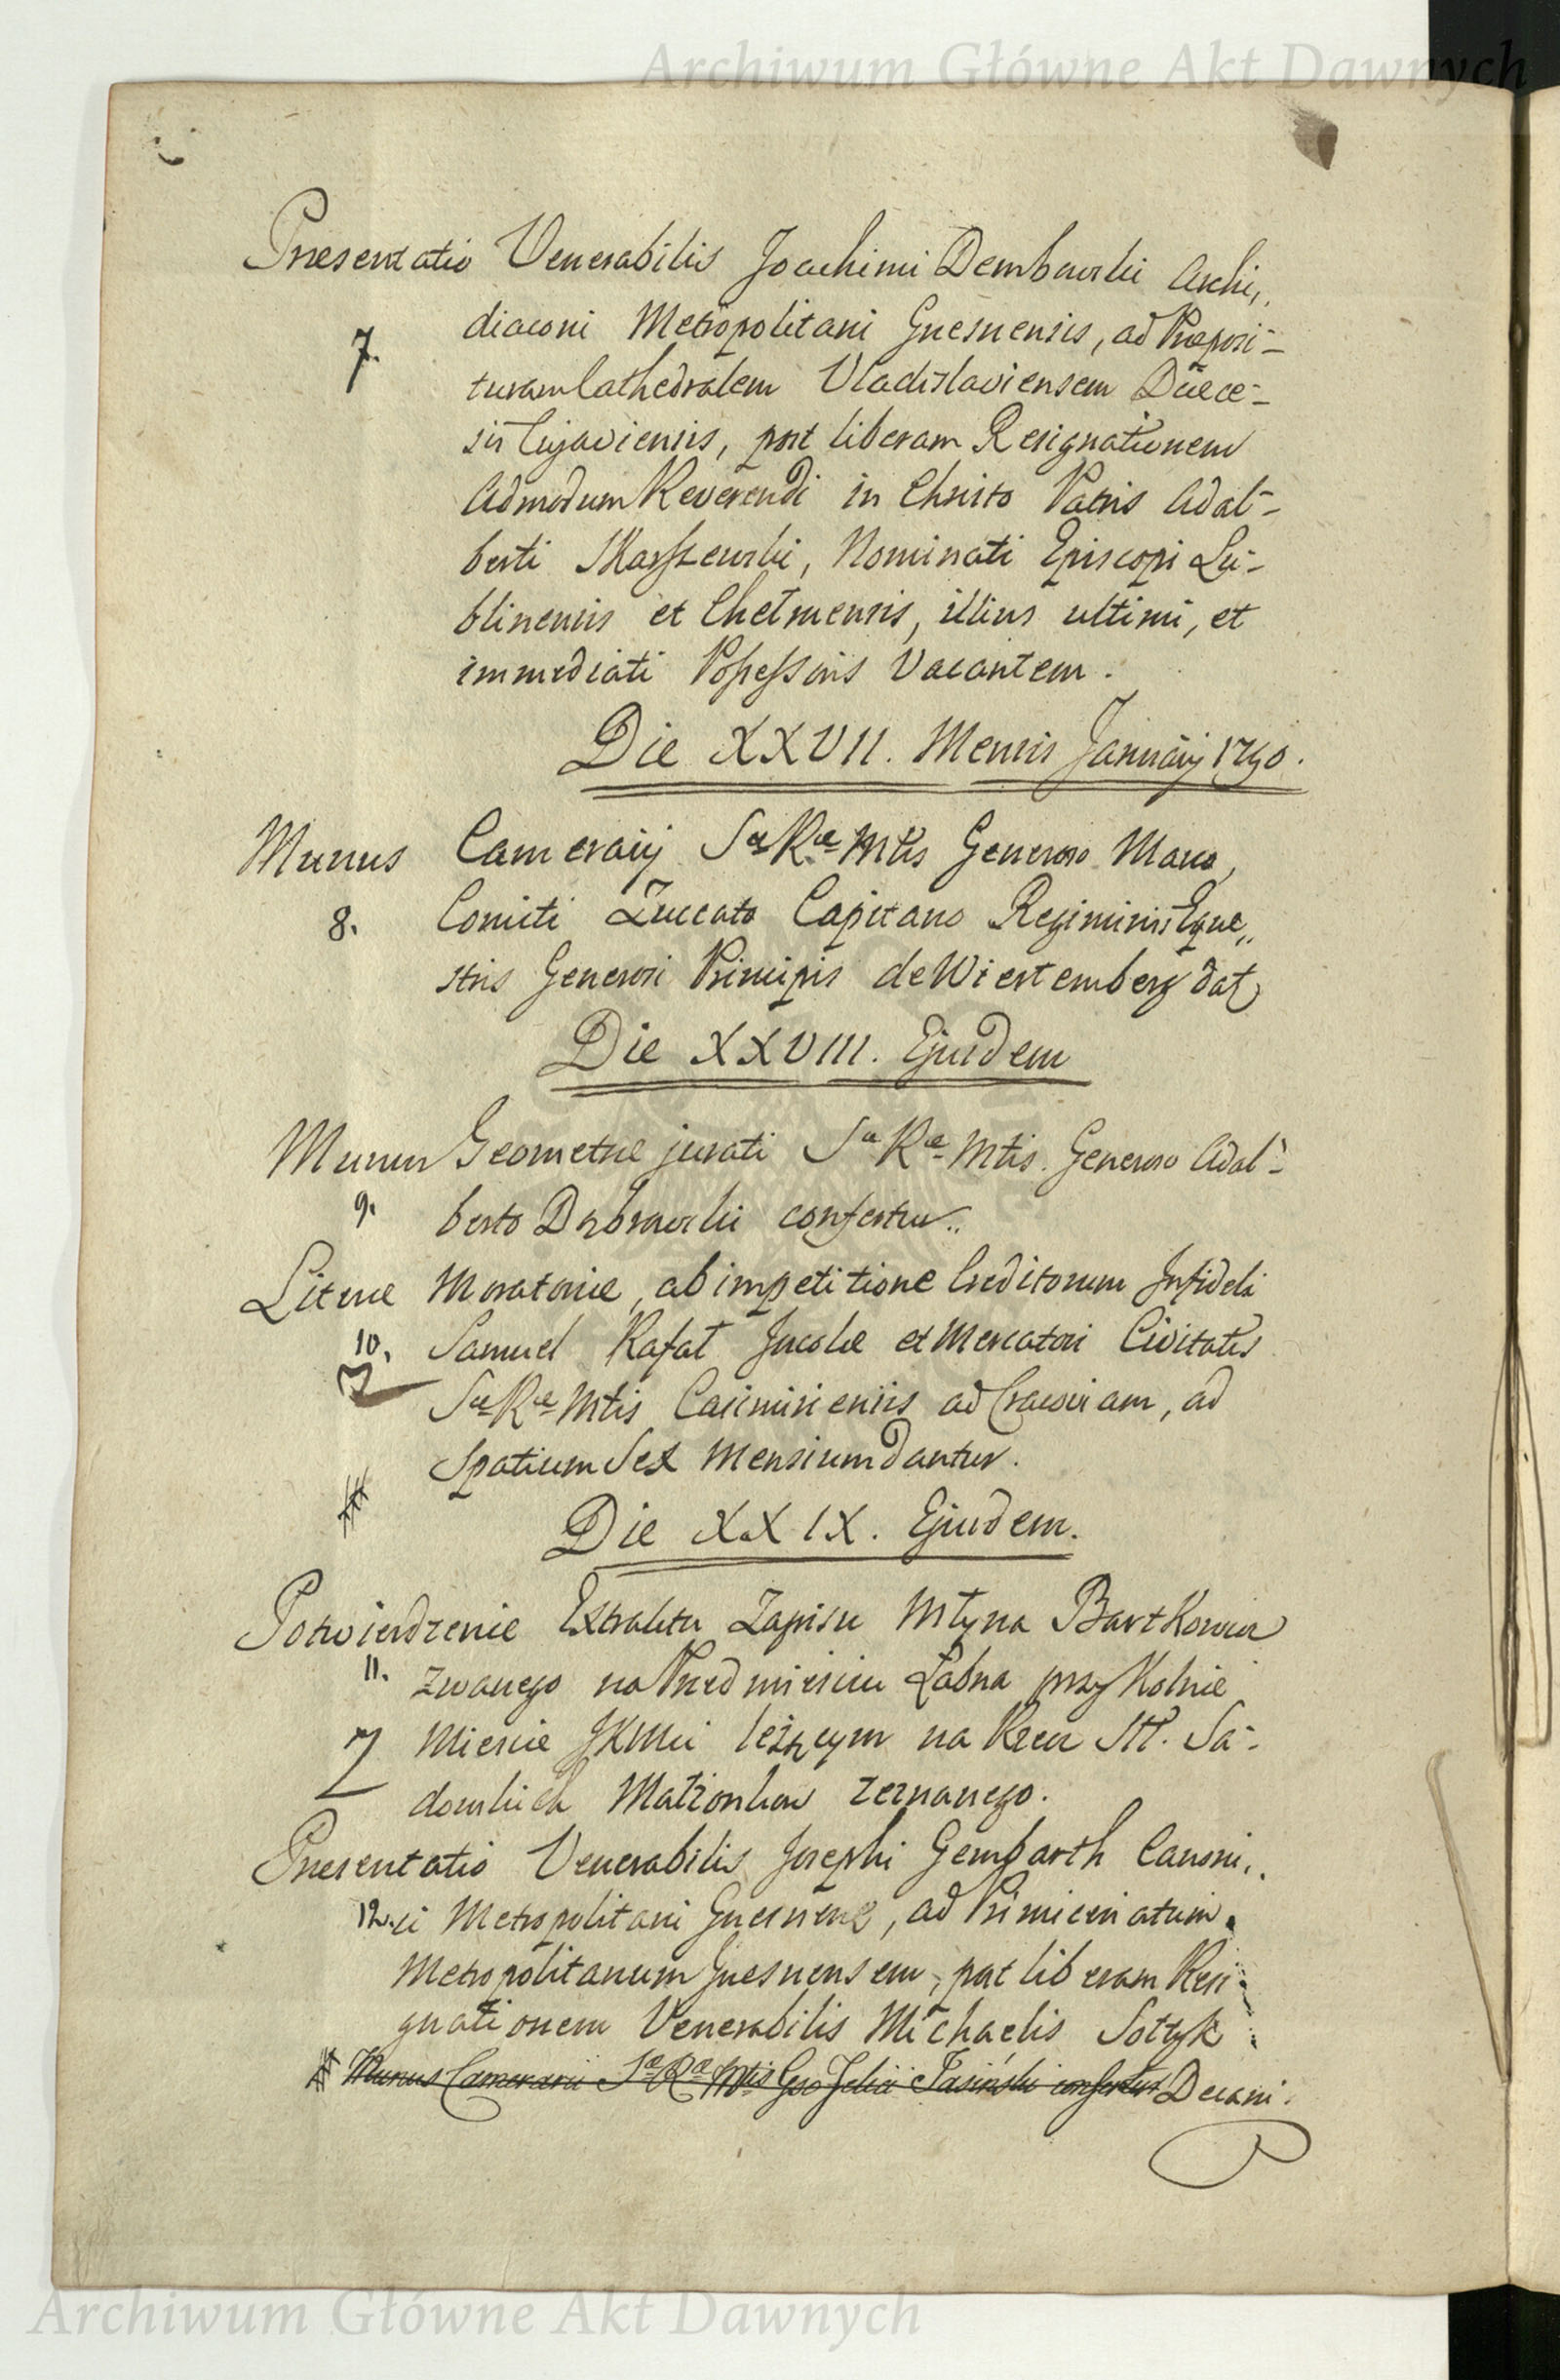 Archiwum Główne Akt Dawnych
Præsentatio Venerabilis Joachimi Dembowski Archi,,
7. diaconi Metropolitani Gnesnensis, ad Præposi-
turam Cathedralem Vladislaviensem Diæce-
sis Cujaviensis, post liberam Resignationem
Admodum Reverendi in Christo Patris Adal-
berti Skarszewski, Nominati Episcopi Lu-
blinensis et Chełmensis, illius ultimi, et
immediati Possessoris Vacantem.
Die XXVII. Mensis Januarij 1790.
Munus Camerarij Sæ Ræ Mtis Generoso Marco,
8. Comiti Zuccato Capitano Regiminis Eque,,
stris Generosi Principis de Wiertemberg dat
Die XXVIII. Ejusdem
Munus Geometræ jurati Sæ Ræ Mtis. Generoso Adal-
9. berto Dąbrowski confertur.
Literæ Moratoriæ, ab impetitione Creditorum Infideli
10. Samuel Rafał Incolæ et Mercatori Civitatis
Sæ Ræ Mtis Casimiriensis ad Cracoviam, ad
Spatium Sex Mensium dantur.
Die XXIX. Ejusdem.
Potwierdzenie Extraktu Zapisu Młyna Bartkowia
11. zwanego na Przedmieściu Łabna przy Kolnie
Mieście JKMci leżącym na Rzecz Stt. Sa-
dowskich Małżonkow zeznanego.
Præsentatio Venerabilis Josephi Gembarth Canoni,,
12. ci Metropolitani Gnesnens, ad Primiceriatum
Metropolitanum Gnesnensem, post liberam Resi-
gnationem Venerabilis Michaelis Sołtyk
Munus Camerarii Sæ Ræ Mtis Gso Felici Jasiński confertur Decani.
Archiwum Główne Akt Dawnych